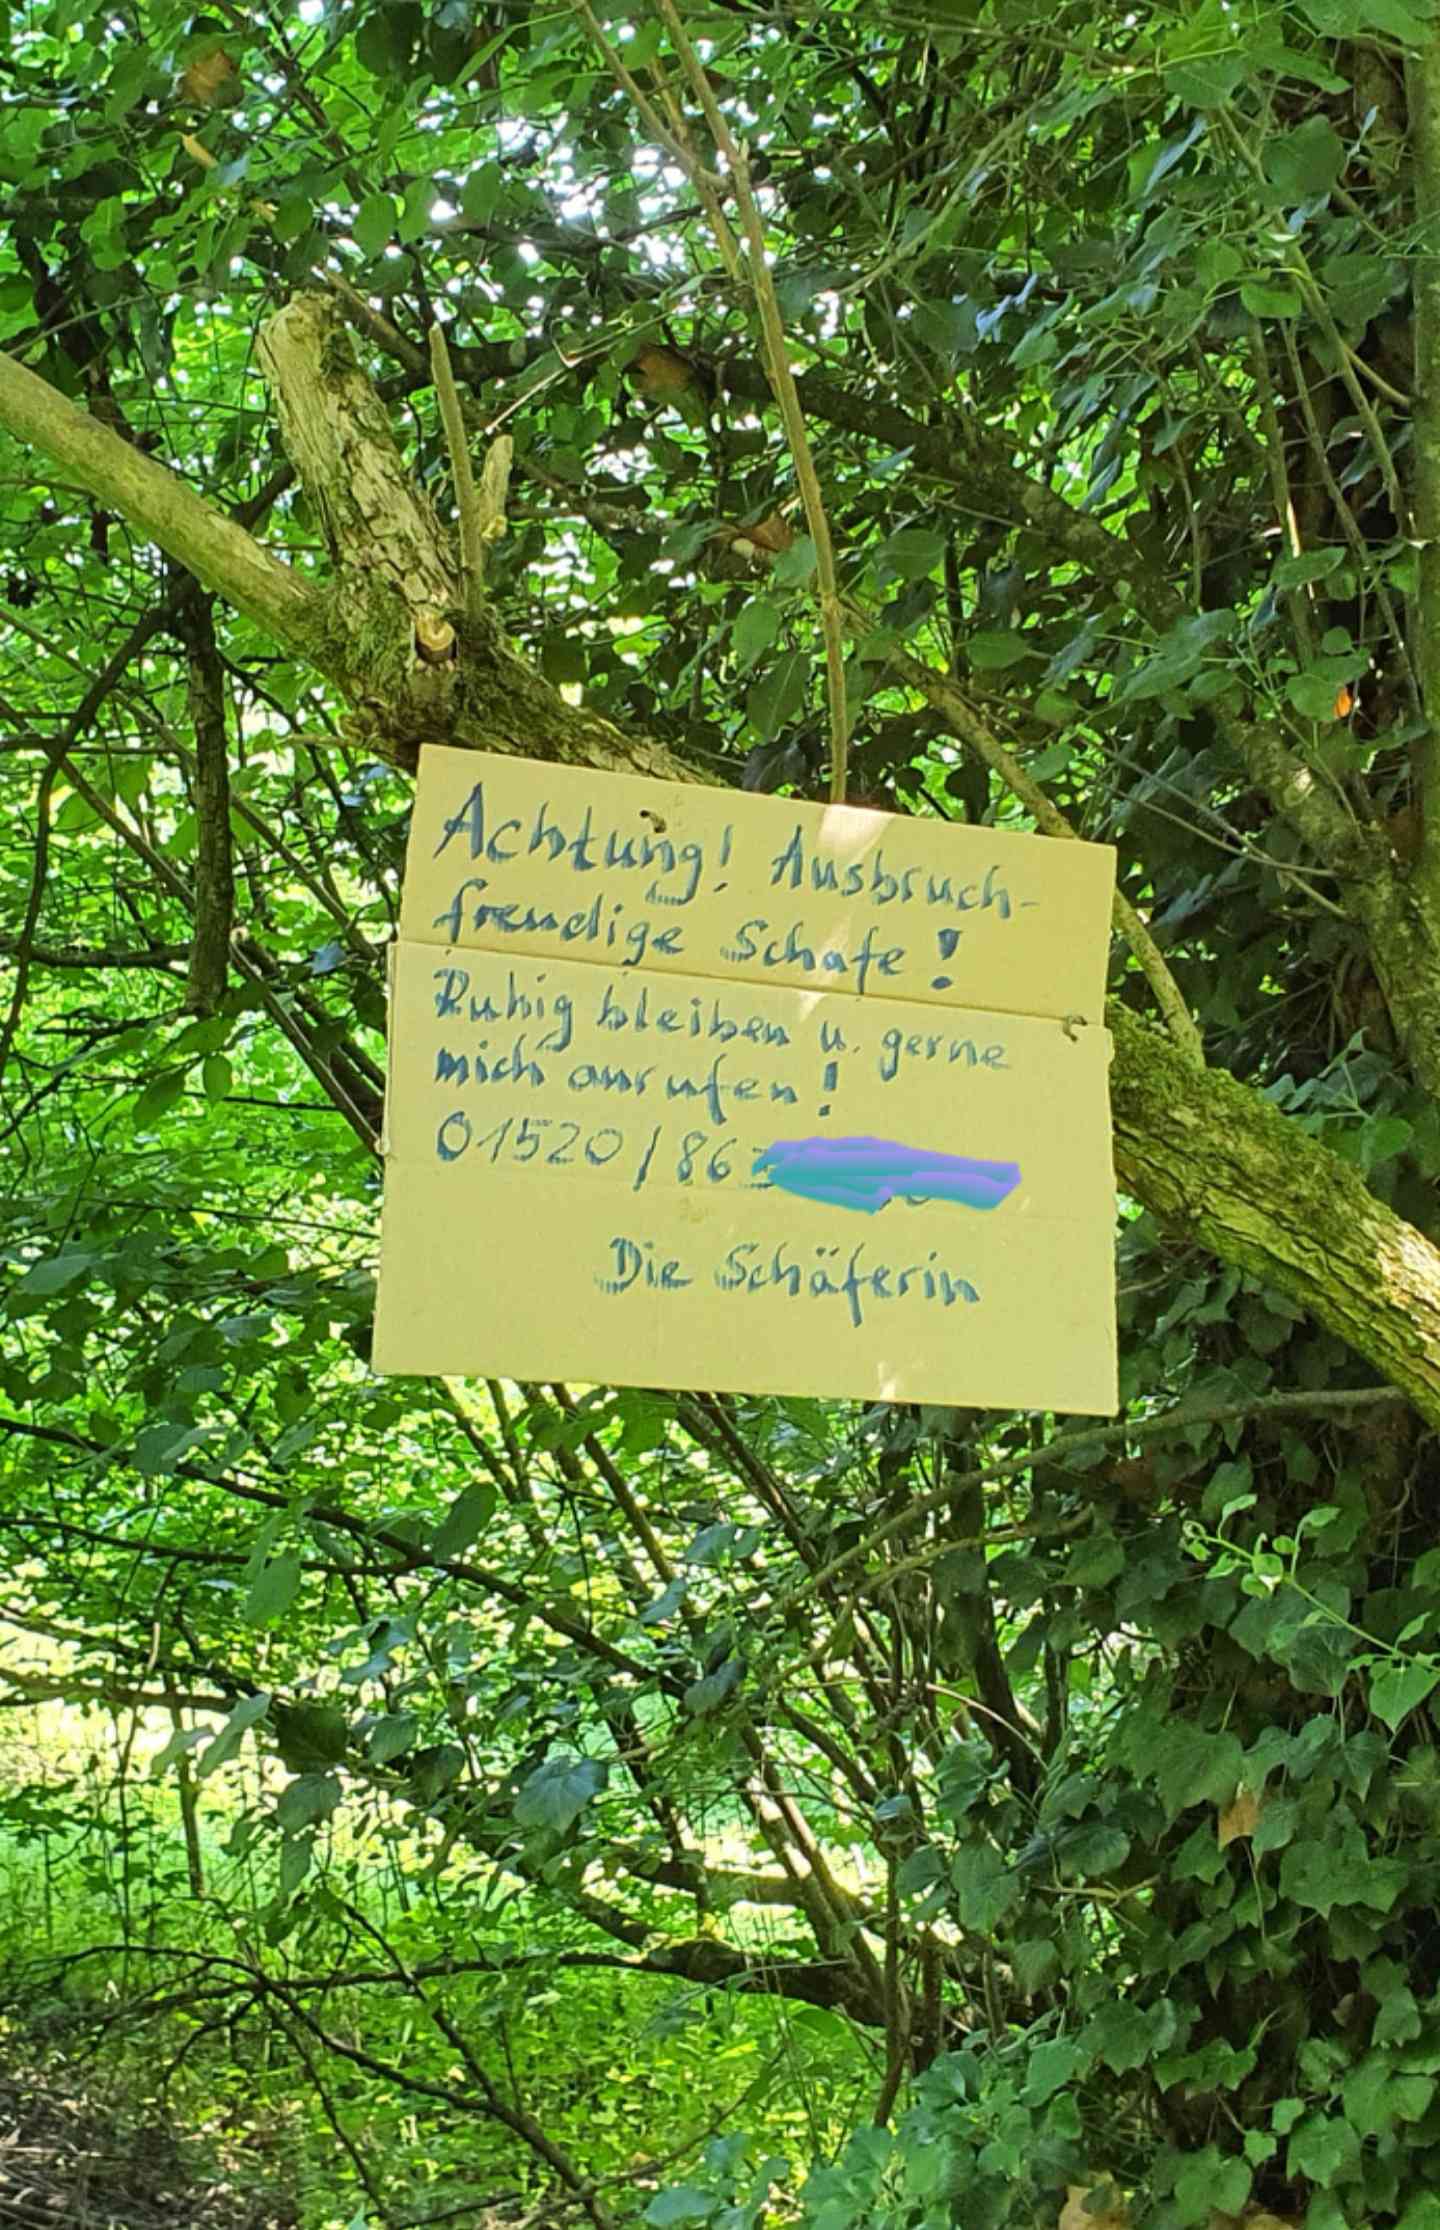 Achtung! Ausbruch-
freudige Schafe!
Ruhig bleiben u. gerne
mich anrufen!
01520/86
Die Schäferin